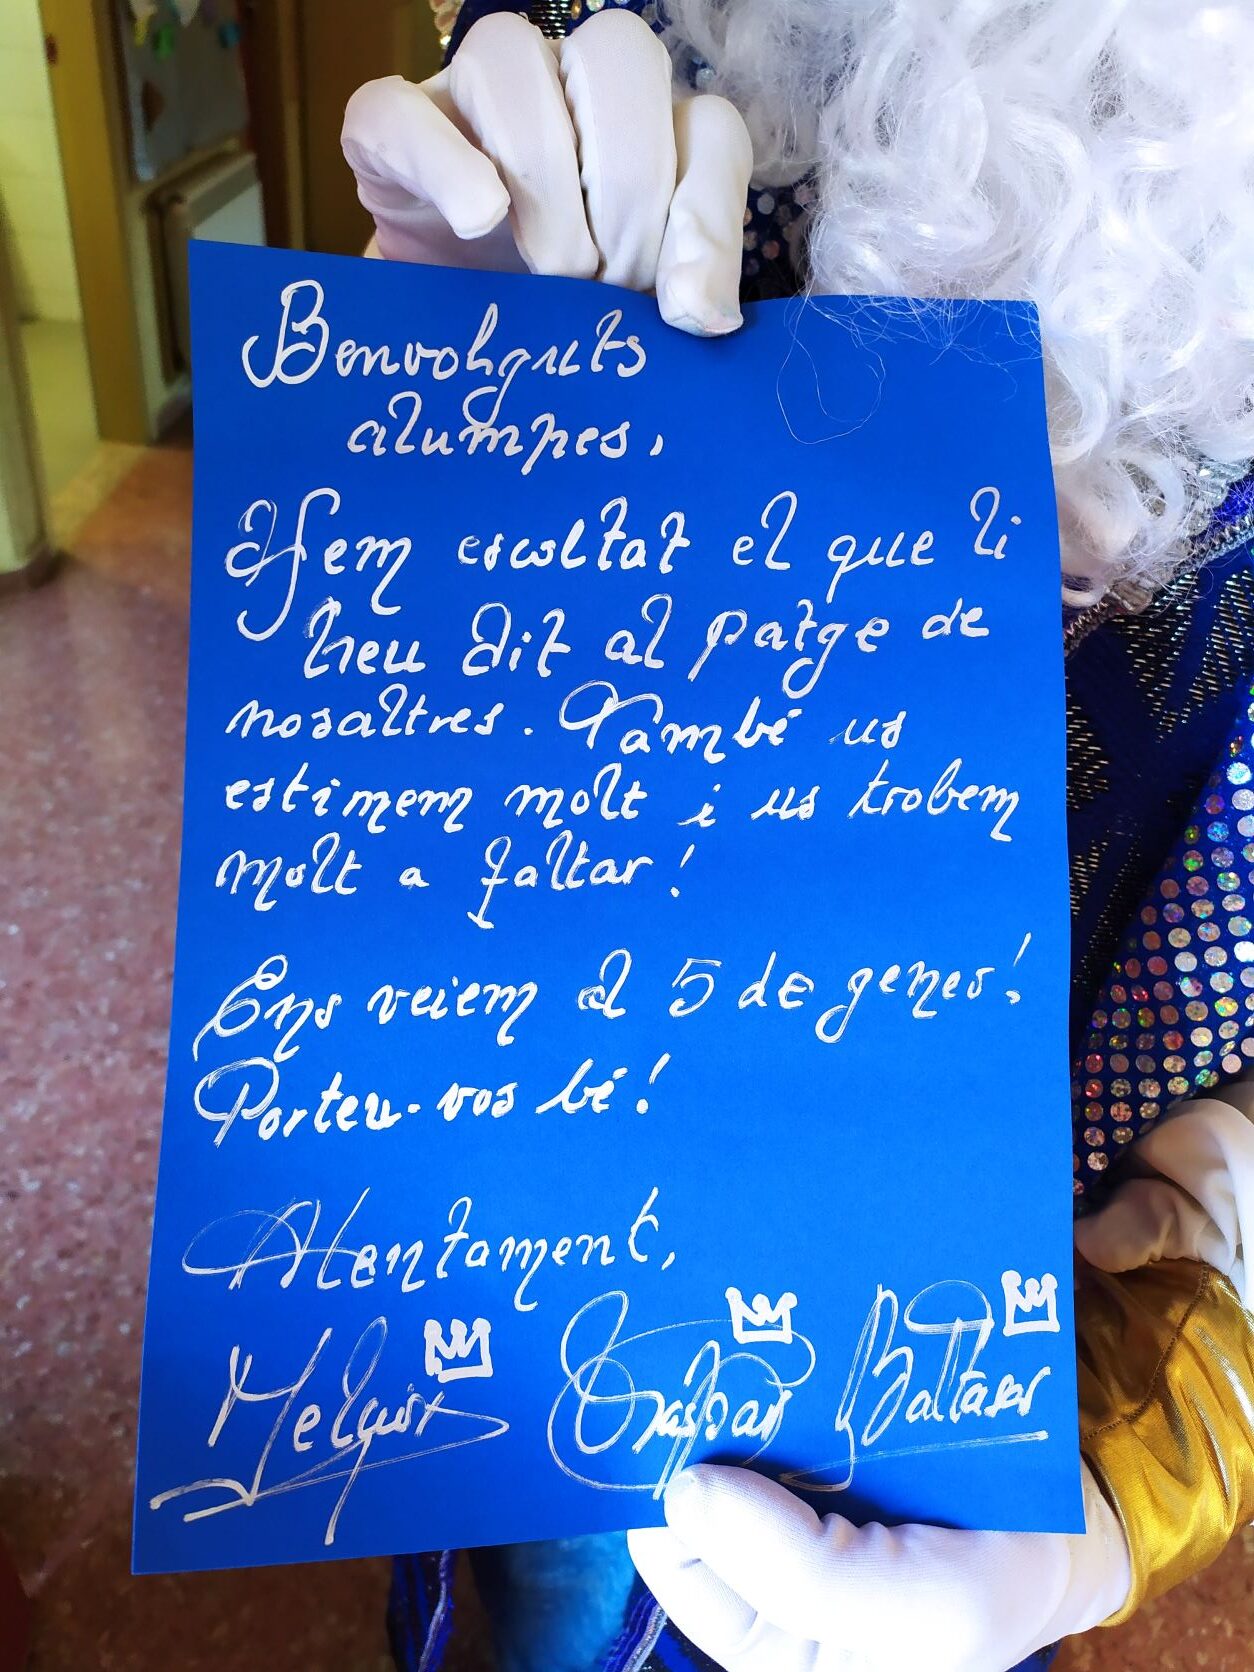 Benvolguts
alumnes,
Hem escoltat el que li
heu dit al patge de
nosaltres. També us
estimem molt i us trobem
molt a faltar!
Ens veiem el 5 de gener!
Porteu-vos bé!
Atentament,
Melcior Gaspar Baltasar